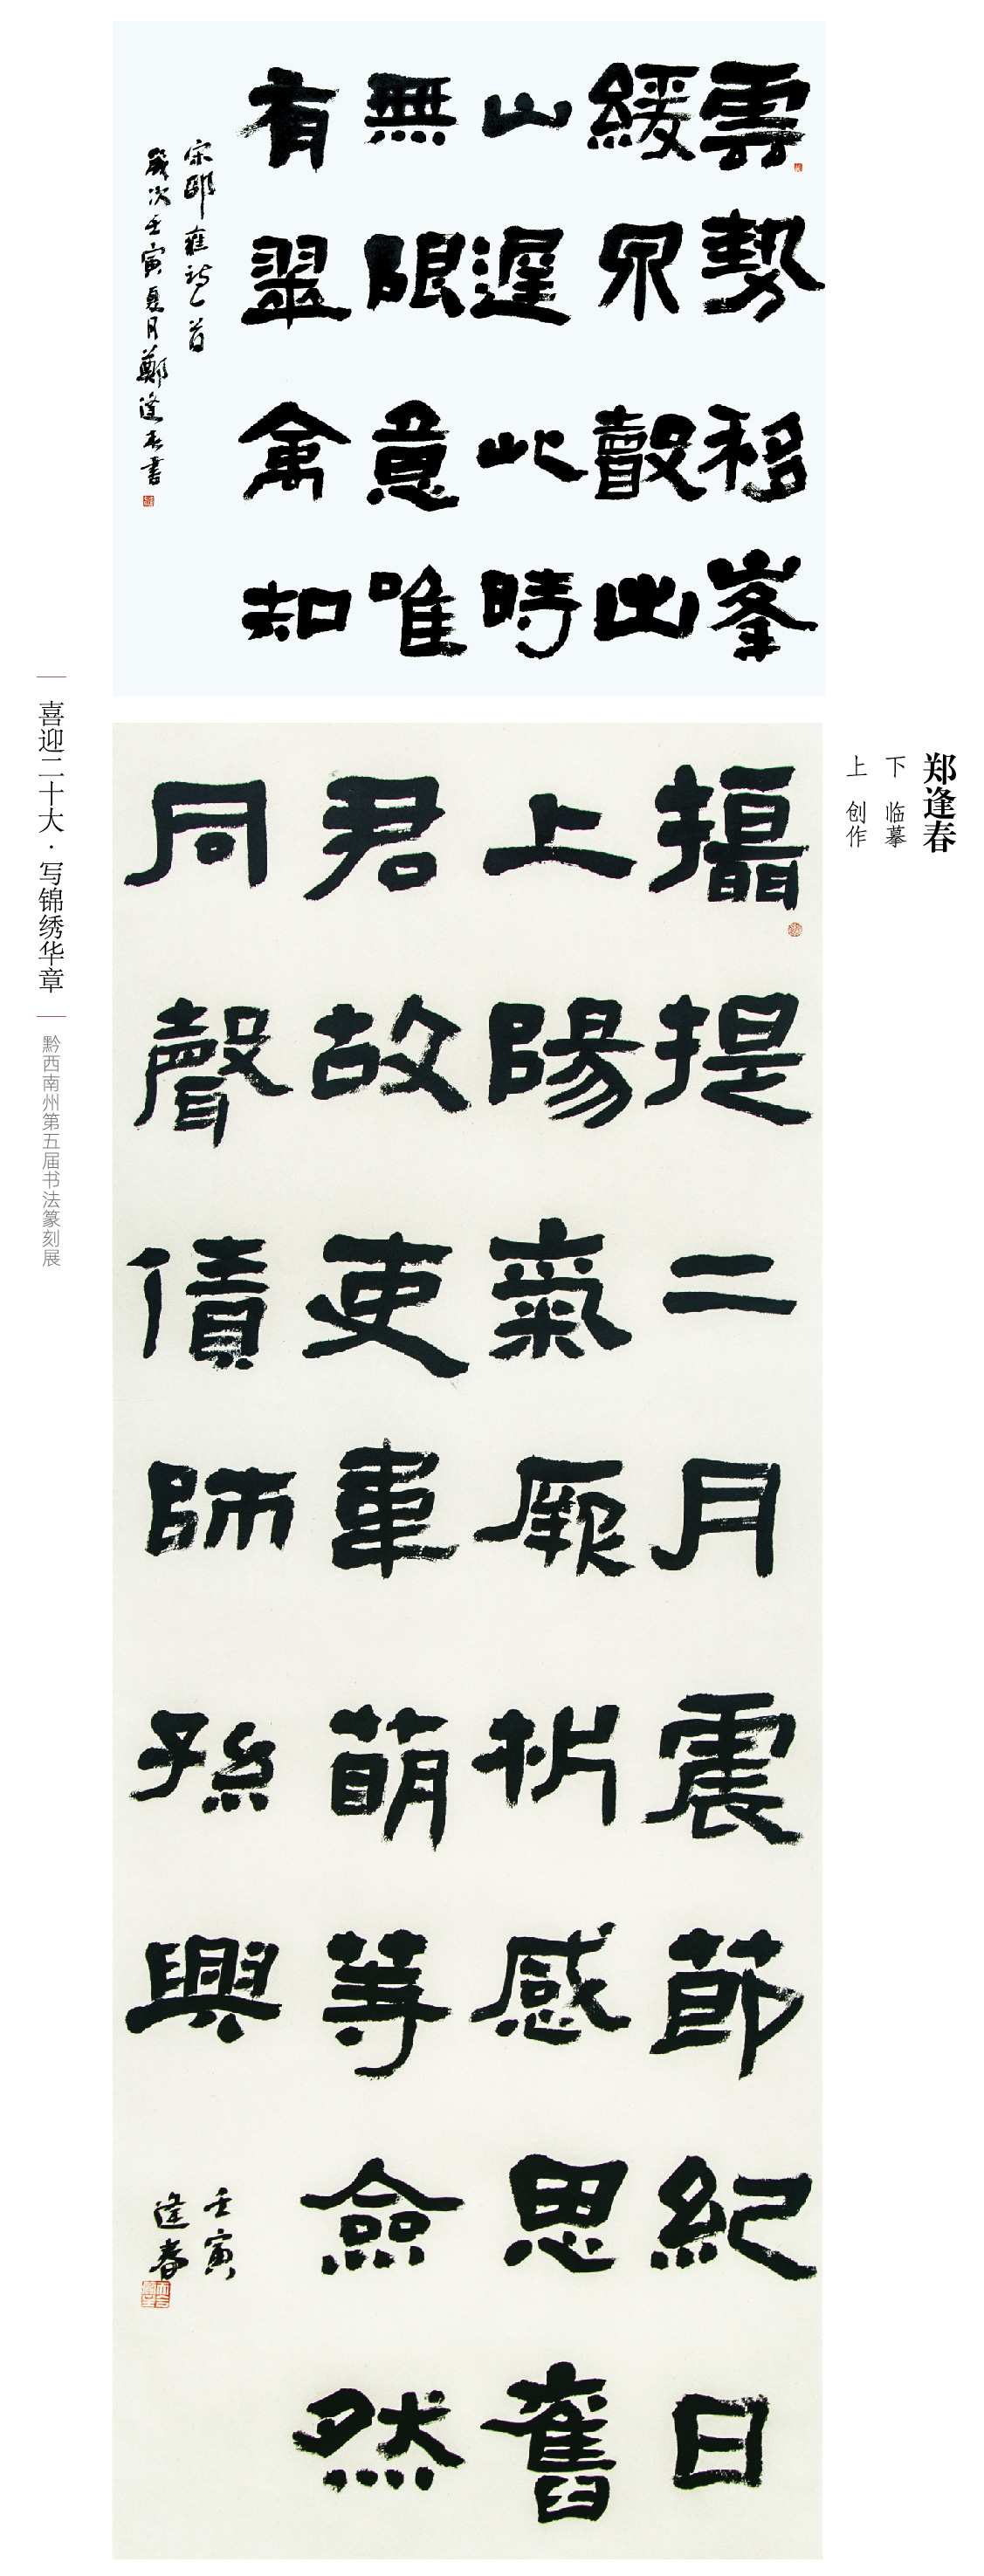 郑逢春
下 临摹
上 创作
雲勢移峯
緩泉聲出
山遲此時
無限意唯
有翠禽知
宋邵雍詩一首
歲次壬寅夏月鄭逢春書
攝提二月震節紀日
上陽氣厥析感思舊
君故吏韋萌等僉然
同聲賃師孫興
壬寅
逢春
喜迎二十大·写锦绣华章
黔西南州第五届书法篆刻展